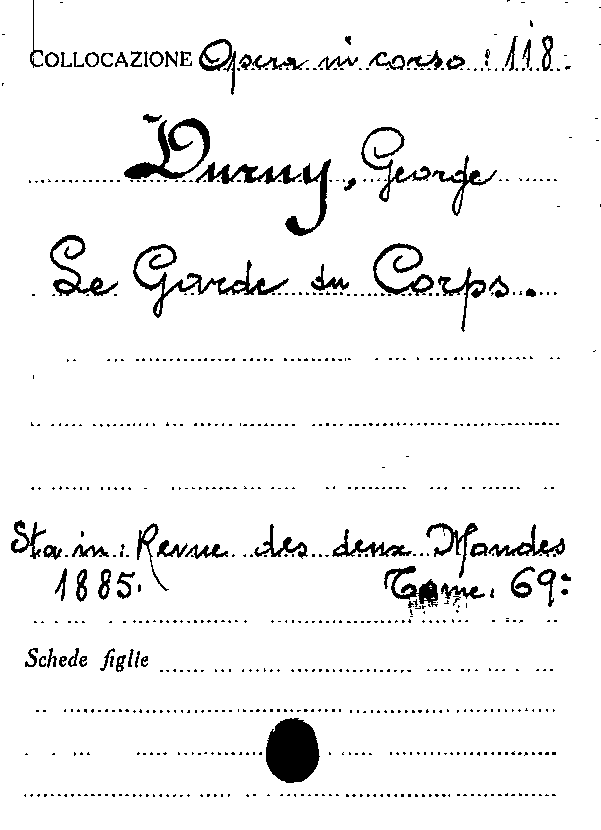 COLLOCAZIONE Opera in corso: 118.
Duruy, George
Le Garde du Corps.
Sta in: Revue des deux Mondes
1885. Tome. 69:
Schede figlie